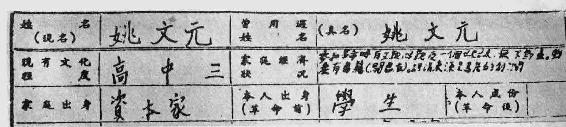 姓名(現名) 姚文元 曾用過姓名 (真名) 姚文元
現有文化程度 高中三 家庭經濟狀況
家庭出身 資本家 本人出身(革命前) 學生 本人成份(革命後)